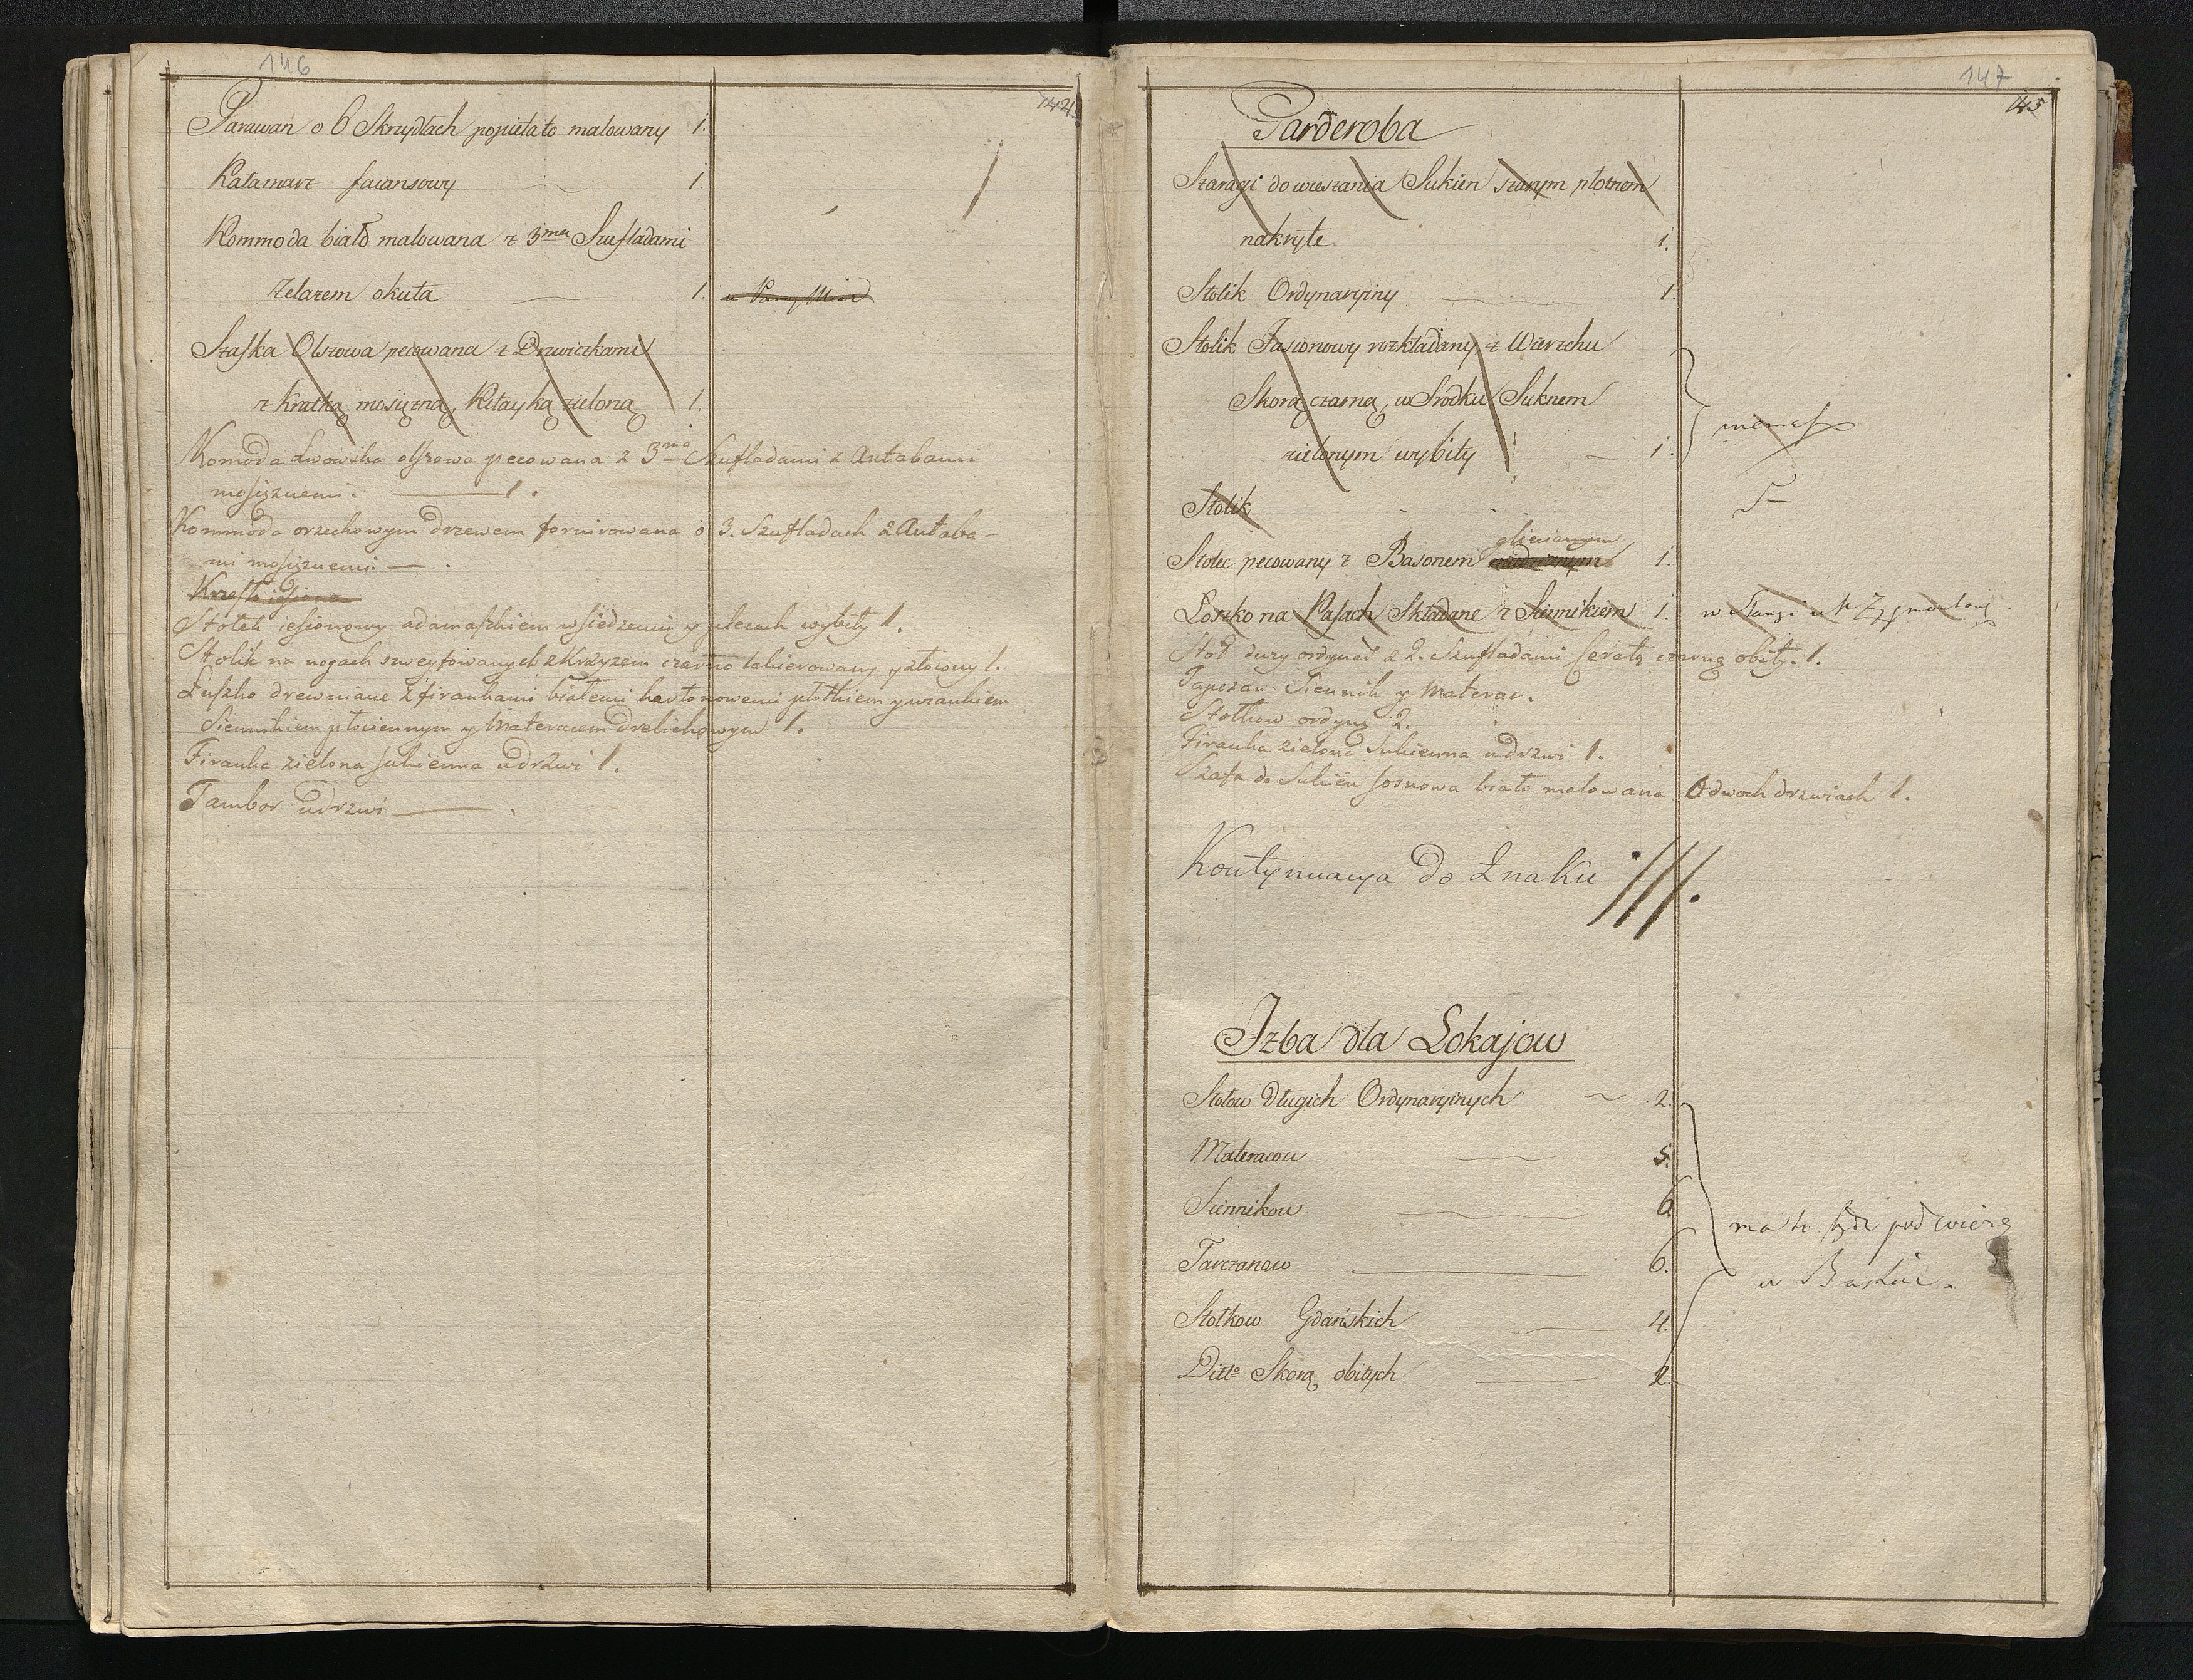 146
144
Parawan o 6 Skrzydłach popielato malowany 1.
Kałamarz faiansowy 1.
Kommoda biało malowana z 3ma Szufladami
żelazem okuta 1.
Szafka Olszowa pecowana z Drzwiczkami
z Kratką mosiężną, Kitayką zieloną 1.
Komoda Lwowska olszowa pecowana z 3ma Szufladami z Antabami
mosiężnemi. — 1.
Kommoda orzechowym drzewem fornirowana o 3. Szufladach z Antaba-
mi mosiężnemi —.
Krzesło iesiono
Stołek iesionowy adamaszkiem w siedzeniu y plecach wybity 1.
Stolik na nogach szweyfowanych z Krzyzem czarno lakierowany y złocony 1.
Łuszko drewniane z firankami białemi kartonowemi płotkiem y wiankiem
Siennikiem płuciennym y Materacem Drelichowym 1.
Firanka zielona sukienna u drzwi 1.
Tambor u drzwi —
147
145
Garderoba
Szaragi do wieszania Sukien szarym płotnem
nakryte 1.
Stolik Ordynaryiny 1.
Stolik Jasionowy rozkładany z Wierzchu
Skorą czarną, w Srodku Suknem
zielonym wybity 1.
Stolik
glinianym
Stolec pecowany z Basonem 1.
Łoszko na Pasach Składane z Siennikiem 1.
Stoł duzy ordynar z 2. Szufladami ceratą czarną obity. 1.
Tapczan Siennik y Materac.
Stołkow ordyn 2.
Firanka zielona Sukienna u drzwi 1.
Szafa do Sukien sosnowa biało malowana O dwoch drzwiach 1.
Kontynuacya Do Znaku ///.
Izba dla Lokajow
Stołow Długich Ordynaryinych 2.
Materacow 5.
Siennikow 6.
Tarczanow 6.
Stołkow Gdańskich 4.
Ditto Skorą obitych 2.
ma to bydz pod wieżą
w Baszcie.